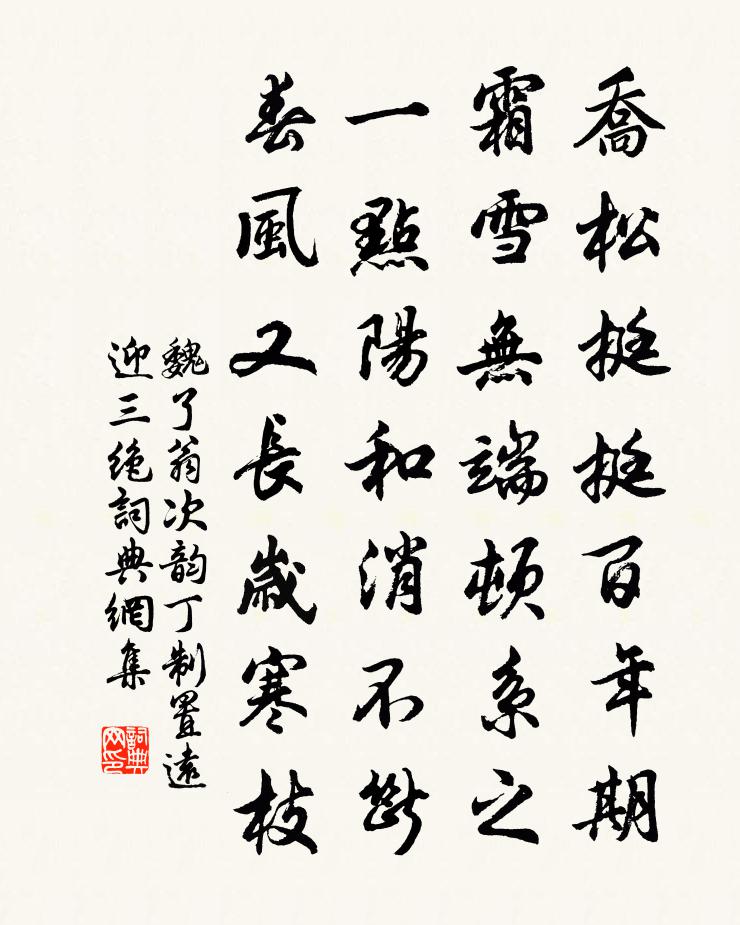 喬松挺挺百年期
霜雪無端頓系之
一點陽和消不斷
春風又長歲寒枝
魏了翁次韵丁制置遠
迎三绝詞典網集
詞典网印